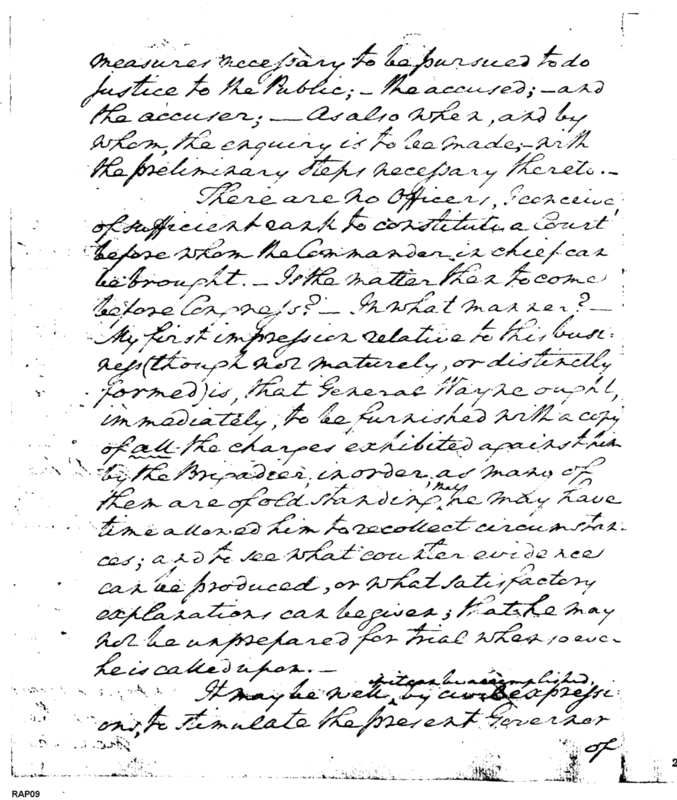 measures necessary to be pursued to do
justice to the Public; – the accused; – and
the accuser; — As also when, and by
whom, the enquiry is to be made; – with
the preliminary steps necessary thereto. –
There are no Officers, I conceive,
of sufficient rank to constitute a Court
before whom the Commander in chief can
be brought. – Is the matter then to come
before Congress? – In what manner? –
My first impression relative to this busi-
ness (though not maturely, or distinctly
formed) is, that General Wayne ought,
immediately, to be furnished with a copy
of all the charges exhibited against him
by the Brigadier, in order, as many of
them are of old standing, that he may have
time allowed him to recollect circumstan-
ces; and to see what counter evidence
can be produced, or what satisfactory
explanations can be given; that he may
not be unprepared for trial when soever
he is called upon. –
It may be well, if it can be accomplished, by civil expressi-
ons, to stimulate the present Governor
of
2
RAP09